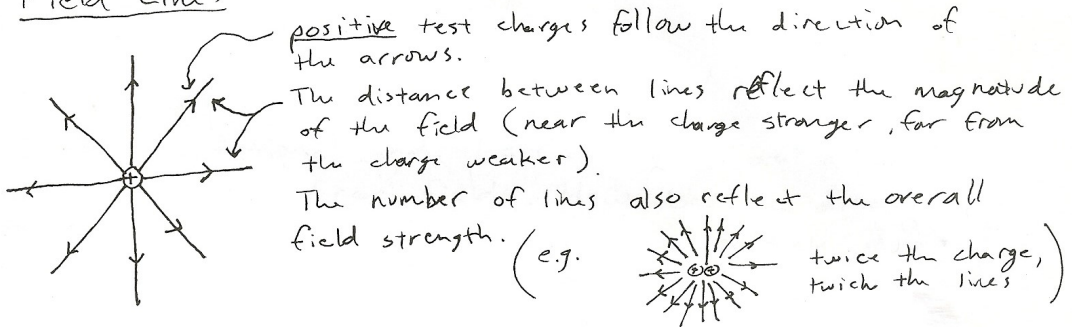 Field Lines
positive test charges follow the direction of
the arrows.
The distance between lines reflect the magnetude
of the field (near the charge stronger, far from
the charge weaker).
The number of lines also reflect the overall
field strength. (e.g.
+
++
twice the charge,
twich the lines)